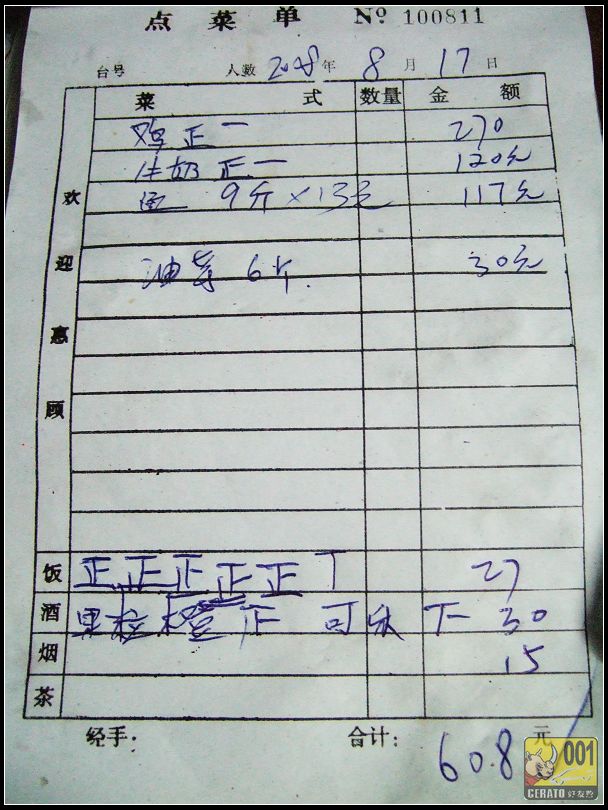 点菜单 Nº 100811
台号 人数 2008年 8月 17日
菜式 数量 金额
鸡 正一 270
牛奶 正一 120元
鱼 9斤×13元 117元
油 6斤 30元
欢迎惠顾
饭 正正正正正丅 27
酒 果粒橙 正 可乐 下 30
烟 15
茶
经手: 合计: 60.8 元
001
CERATO 好友群